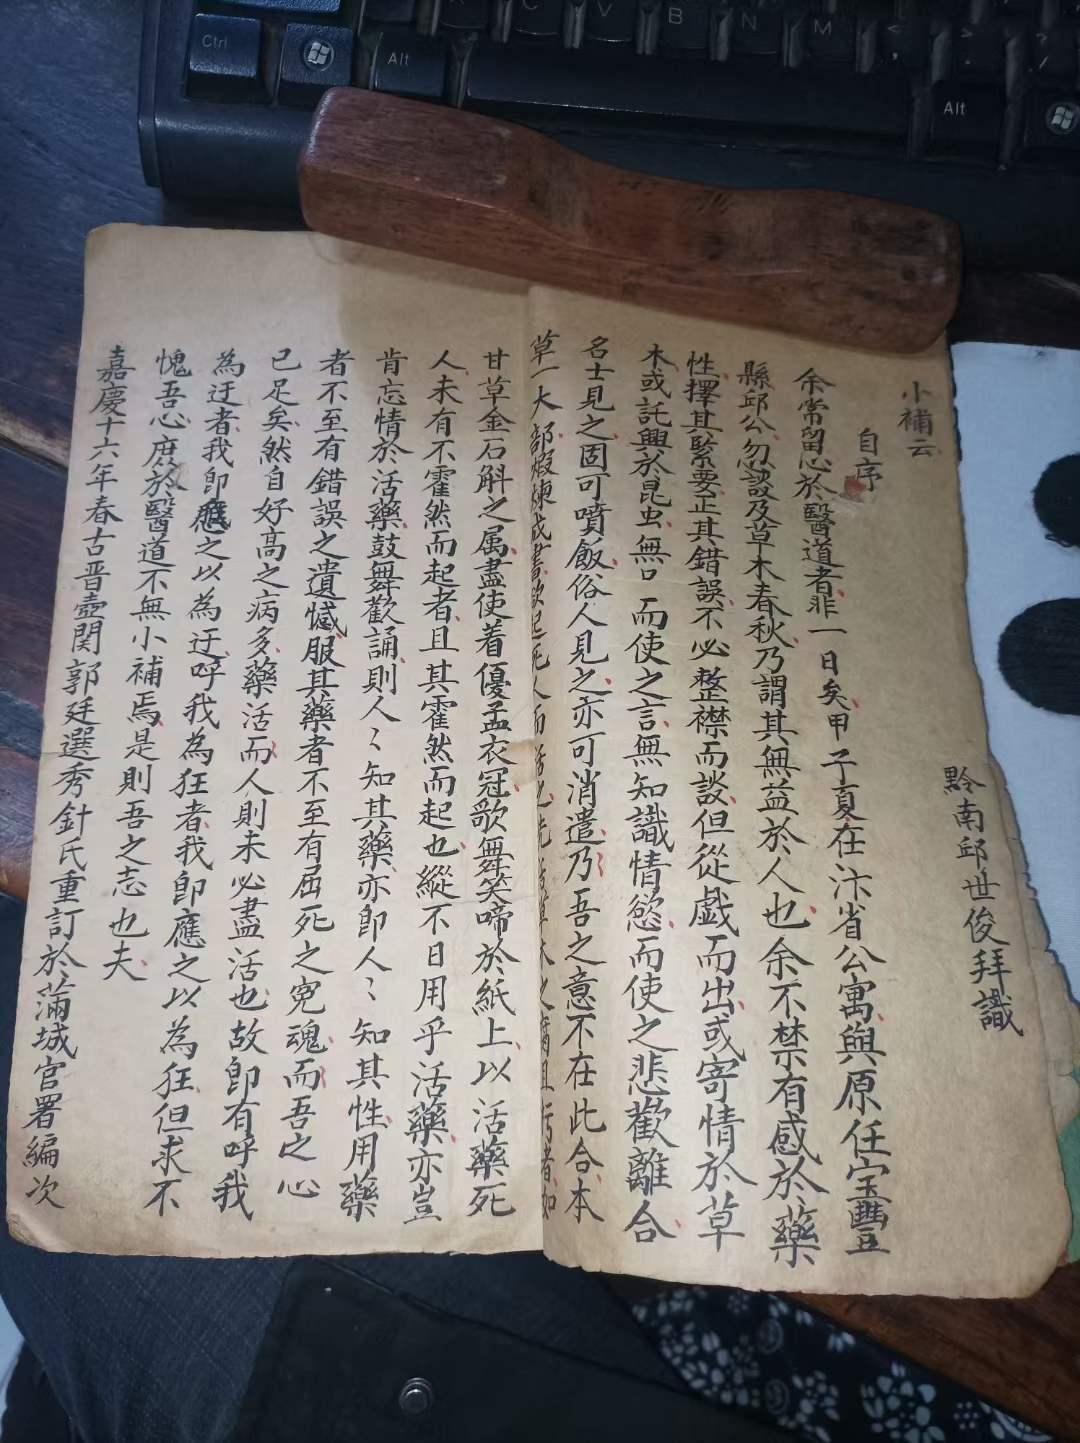 小補云
黔南邱世俊拜識
自序
余常留心於醫道者非一日矣甲子夏在汴省公寓與原任宝豐
縣邱公忽談及草木春秋乃謂其無益於人也余不禁有感於藥
性擇其緊要正其錯誤不必整襟而談但從戲而出或寄情於草
木或託興於昆虫無口而使之言無知識情慾而使之悲歡離合
名士見之固可噴飯俗人見之亦可消遣乃吾之意不在此合本
草一大部煅煉成書欲起死人而活之先活草木之
甘草金石斛之属盡使着優孟衣冠歌舞笑啼於紙上以活藥死
人未有不霍然而起者且其霍然而起也縱不日用乎活藥亦豈
肯忘情於活藥鼓舞歡誦則人〻知其藥亦即人〻知其性用藥
者不至有錯誤之遺憾服其藥者不至有屈死之寃魂而吾之心
已足矣然自好高之病多藥活而人則未必盡活也故即有呼我
為迂者我即應之以為迂呼我為狂者我即應之以為狂但求不
愧吾心庶於醫道不無小補焉是則吾之志也夫
嘉慶十六年春古晋壺関郭廷選秀針氏重訂於蒲城官署編次
Ctrl
Alt
C
V
B
N
M
Alt